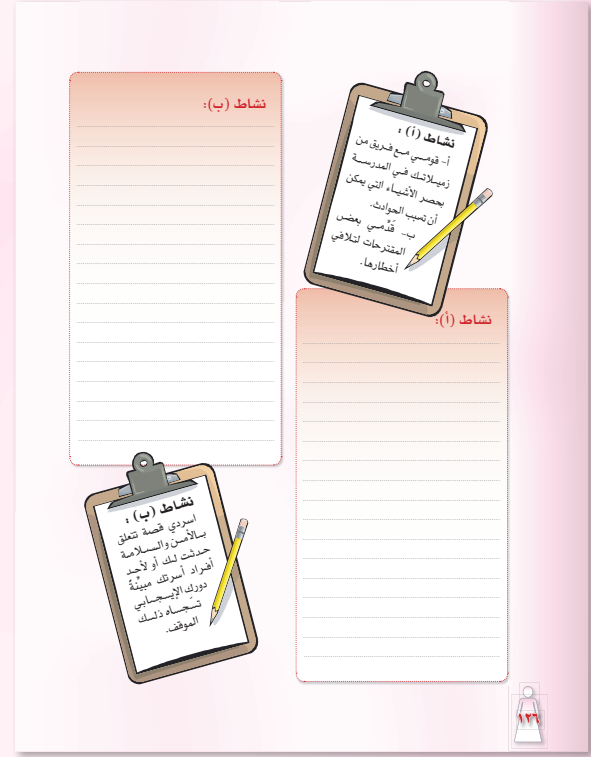 نشاط (أ) :
أ- قومي مع فريق من
زميلاتك في المدرسة
بحصر الأشياء التي يمكن
أن تسبب الحوادث.
ب- قَدِّمي بعض
المقترحات لتلافي
أخطارها.
نشاط (أ):
نشاط (ب):
نشاط (ب) :
اسردي قصة تتعلق
بالأمن والسلامة
حدثت لك أو لأحد
أفراد أسرتك مبيِّنةً
دورك الإيجابي
تجاه ذلك
الموقف.
١٢٦